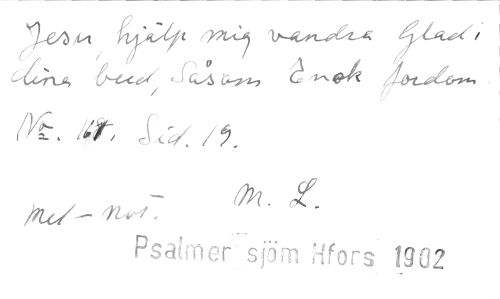 Jesu, hjälp mig vandra Glad i
dina bud, Såsom Enok fordom
No. Sid. 19.
M. L.
mel-not.
Psalmer sjöm Hfors 1902